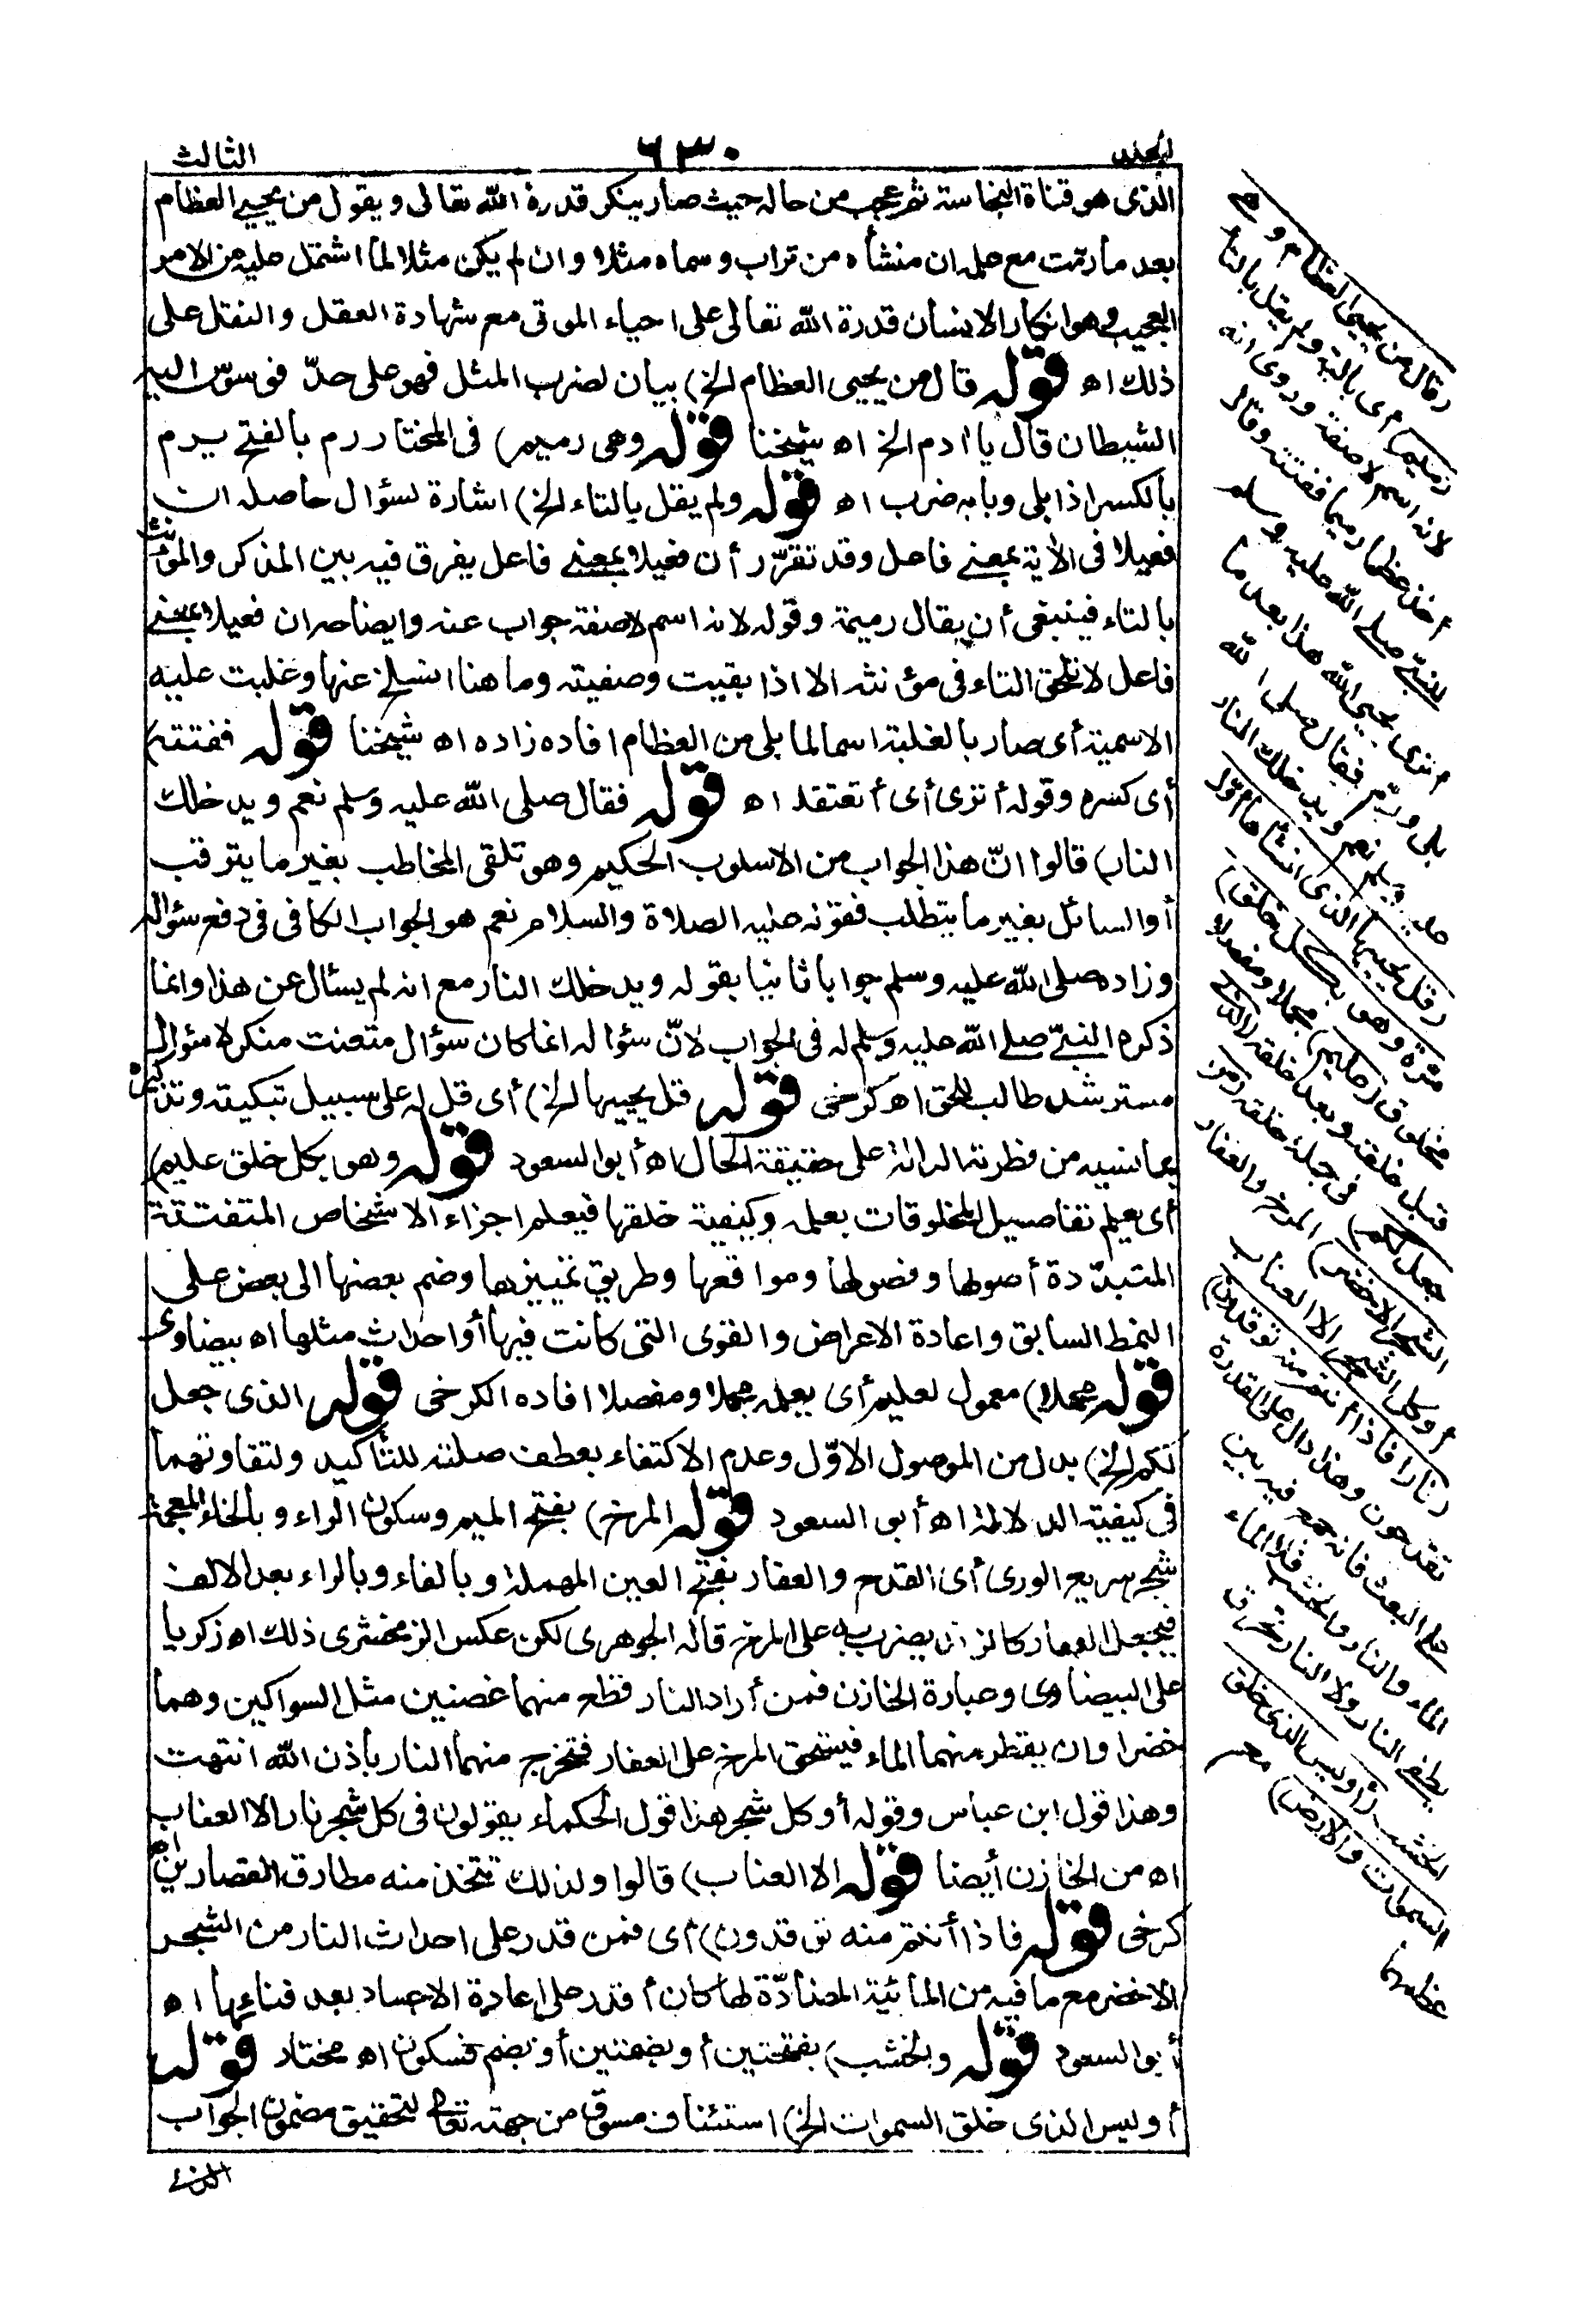 الجلد ٦٣٠ الثالث
الذى هو قناة النجاسة ثم عجب من حاله حيث صار ينكر قدرة الله تعالى ويقول من يحيى العظام
بعد ما رمّت مع علمه ان منشأه من تراب وسماه مثلا وان لم يكن مثلا لما اشتمل عليه من الامر
العجيب وهو انكار الانسان قدرة الله تعالى على احياء الموتى مع شهادة العقل والنقل على
ذلك اه قوله قال من يحيى العظام الخ) بيان لضرب المثل فهو على حدّ فوسوس اليه
الشيطان قال يا ادم الخ اه شيخنا قوله وهى رميم) فى المختار رم بالفتح يرم
بالكسر اذا بلى وبابه ضرب اه قوله ولم يقل بالتاء الخ) اشارة لسؤال حاصله ان
فعيلا فى الآية بمعنى فاعل وقد تقرّر أن فعيلا بمعنى فاعل يفرق فيه بين المذكر والمؤنث
بالتاء فينبغى أن يقال رميمة وقوله لانه اسم لا صفة جواب عنه وايضاحه ان فعيلا بمعنى
فاعل لا تلحق التاء فى مؤنثه الا اذا بقيت وصفيته وما هنا انسلخ عنها وغلبت عليه
الاسمية أى صار بالغلبة اسما لما بلى من العظام افاده زاده اه شيخنا قوله ففتته)
أى كسره وقوله أترى أى أتعتقد اه قوله فقال صلى الله عليه وسلم نعم ويدخلك
النار) قالوا انّ هذا الجواب من الاسلوب الحكيم وهو تلقى المخاطب بغير ما يترقب
أو السائل بغير ما يتطلب فقوله عليه الصلاة والسلام نعم هو الجواب الكافى فى دفع سؤاله
وزاده صلى الله عليه وسلم جوابا ثانيا بقوله ويدخلك النار مع انه لم يسأل عن هذا وانما
ذكره النبىّ صلى الله عليه وسلم له فى الجواب لانّ سؤاله انما كان سؤال متعنت منكر لا سؤال
مسترشد طالب للحق اه كرخى قوله قل يحييها الخ) أى قل له على سبيل تبكيته وتذكيره
بما نسيه من فطرته الدالة على حقيقة الحال اه أبو السعود قوله وهو بكل خلق عليم)
أى يعلم تفاصيل المخلوقات بعلمه وكيفية خلقها فيعلم اجزاء الاشخاص المتفتتة
المتبدّدة أصولها وفصولها ومواقعها وطريق تمييزها وضم بعضها الى بعض على
النمط السابق واعادة الاعراض والقوى التى كانت فيها أو احداث مثلها اه بيضاوى
قوله مجملا) معمول لعليم أى يعلمه مجملا ومفصلا افاده الكرخى قوله الذى جعل
لكم الخ) بدل من الموصول الاوّل وعدم الاكتفاء بعطف صلته للتأكيد ولتفاوتهما
فى كيفية الدلالة اه أبو السعود قوله المرخ) بفتح الميم وسكون الراء وبالخاء المعجمة
شجر سريع الورى أى القدح والعفار بفتح العين المهملة وبالفاء وبالراء بعد الالف
فيجعل العفار كالزند يضرب به على المرخ قاله الجوهرى لكن عكس الزمخشرى ذلك اه زكريا
على البيضاوى وعبارة الخازن فمن أراد النار قطع منهما غصنين مثل السواكين وهما
خضراوان يقطر منهما الماء فيسحق المرخ على العفار فتخرج منهما النار باذن الله انتهت
وهذا قول ابن عباس وقوله أو كل شجر هذا قول الحكماء يقولون فى كل شجر نار الا العناب
اه من الخازن أيضا قوله الا العناب) قالوا ولذلك تتخذ منه مطارق القصارين اه
كرخى قوله فاذا أنتم منه توقدون) أى فمن قدر على احداث النار من الشجر
الاخضر مع ما فيه من المائية المضادّة لها كان أقدر على اعادة الاجساد بعد فنائها اه
أبو السعود قوله والخشب) بفتحتين أو بضمتين أو بضم فسكون اه مختار قوله
أوليس الذى خلق السموات الخ) استئناف مسوق من جهته تعالى لتحقيق مضمون الجواب
الذى
(قال من يحيى العظام وهى
رميم) أى بالية ولم يقل بالتاء
لانه اسم لا صفة وروى انه
أخذ عظما رميما ففتته وقال
للنبىّ صلى الله عليه وسلم
أترى يحيى الله هذا بعد ما
بلى ورمّ فقال صلى الله
عليه وسلم نعم ويدخلك النار
(قل يحييها الذى أنشأها أوّل
مرّة وهو بكل خلق)
مخلوق (عليم) مجملا ومفصلا
قبل خلقه وبعد خلقه (الذى
جعل لكم) فى جملة خلقه (من
الشجر الاخضر) المرخ والعفار
أو كل الشجر الا العناب
(نارا فاذا أنتم منه توقدون)
تقدحون وهذا دال على القدرة
على البعث فانه جمع فيه بين
الماء والنار والخشب فلا الماء
يطفى النار ولا النار تحرق
الخشب (أوليس الذى خلق
السموات والارض) مع
عظمهما